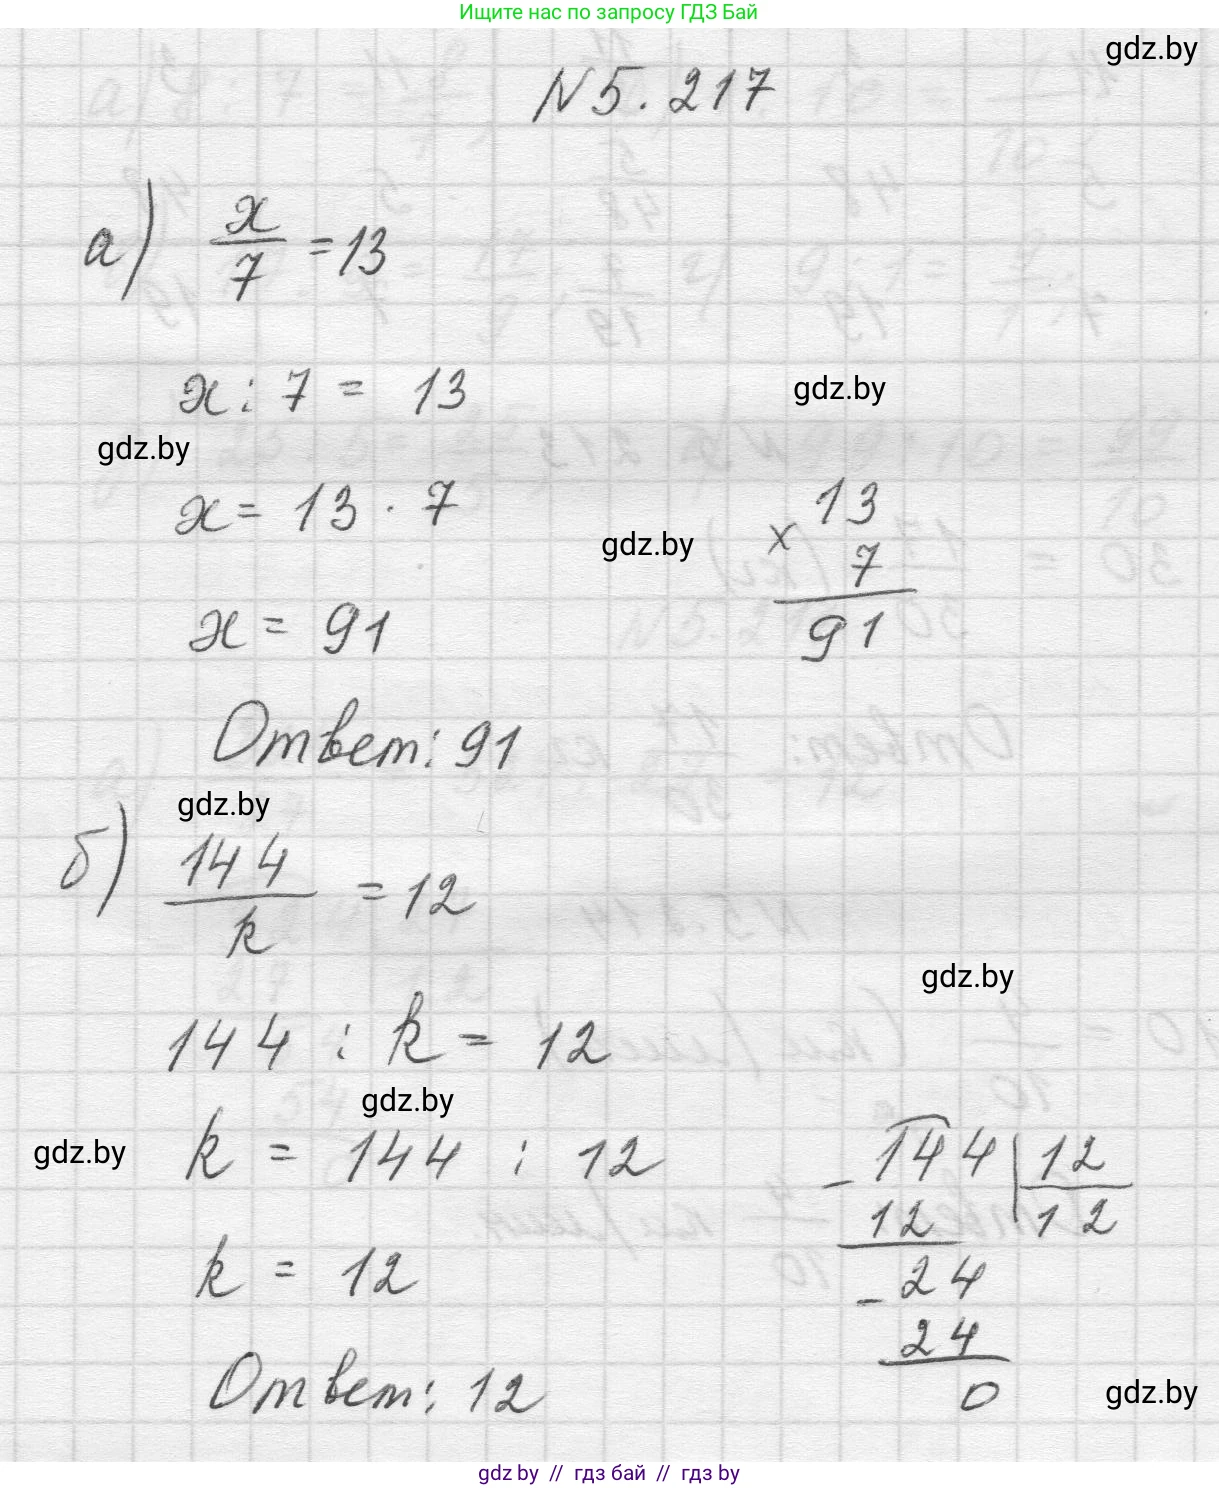 Ищите нас по запросу ГДЗ Бай
gdz.by
N 5.217
а) x/7 = 13
x : 7 = 13
gdz.by
gdz.by
x = 13 · 7
gdz.by
× 13
7
91
x = 91
Ответ: 91
gdz.by
б) 144/k = 12
gdz.by
144 : k = 12
gdz.by
gdz.by
k = 144 : 12
k = 12
- 144 | 12
12 12
- 24
24
0
Ответ: 12
gdz.by
gdz by // гдз бай // гдз by